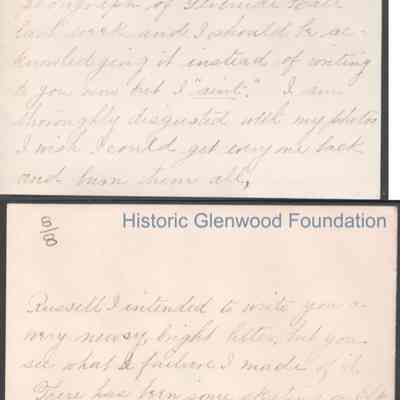 Photograph of Glenside Hall
last week and I should be ac-
knowledging it instead of writing
to you now but I "aint." I am
thoroughly disgusted with my photos
I wish I could get every one back
and burn them all,
8/8
Historic Glenwood Foundation
Russell I intended to write you a
very newsy, bright letter, but you
see what a failure I made of it.
There has been some skating on